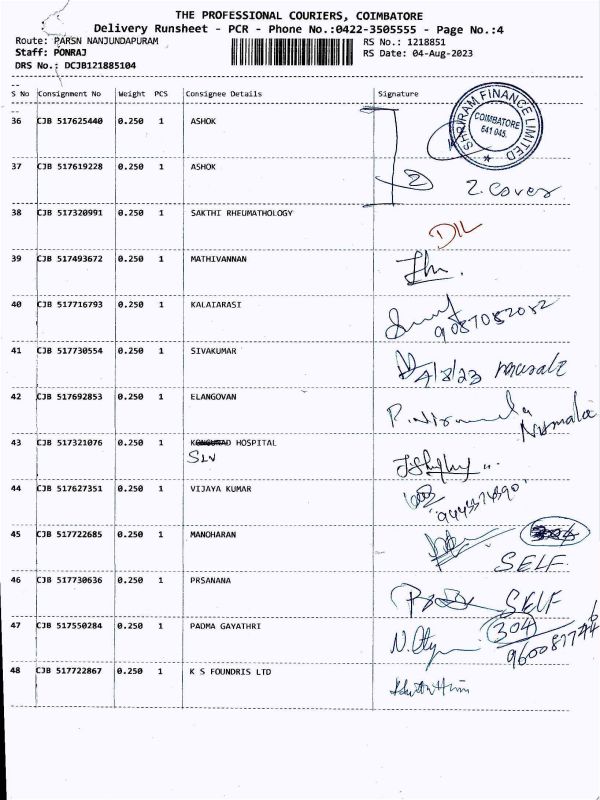 THE PROFESSIONAL COURIERS, COIMBATORE
Delivery Runsheet - PCR - Phone No.:0422-3505555 - Page No.:4
Route: PARSN NANJUNDAPURAM
RS No.: 1218851
Staff: PONRAJ
RS Date: 04-Aug-2023
DRS No.: DCJB121885104
S No Consignment No Weight PCS Consignee Details Signature
SHRIRAM FINANCE LIMITED
COIMBATORE
641 045.
36 CJB 517625440 0.250 1 ASHOK
37 CJB 517619228 0.250 1 ASHOK
2
2. Cover
38 CJB 517320991 0.250 1 SAKTHI RHEUMATHOLOGY
D/L
39 CJB 517493672 0.250 1 MATHIVANNAN
40 CJB 517716793 0.250 1 KALAIARASI
9087082082
41 CJB 517730554 0.250 1 SIVAKUMAR
4/8/23
42 CJB 517692853 0.250 1 ELANGOVAN
P. Nirmala
Nirmala
43 CJB 517321076 0.250 1 HOSPITAL
44 CJB 517627351 0.250 1 VIJAYA KUMAR
45 CJB 517722685 0.250 1 MANOHARAN
SELF
46 CJB 517730636 0.250 1 PRSANANA
SELF
47 CJB 517550284 0.250 1 PADMA GAYATHRI
304
48 CJB 517722867 0.250 1 K S FOUNDRIS LTD